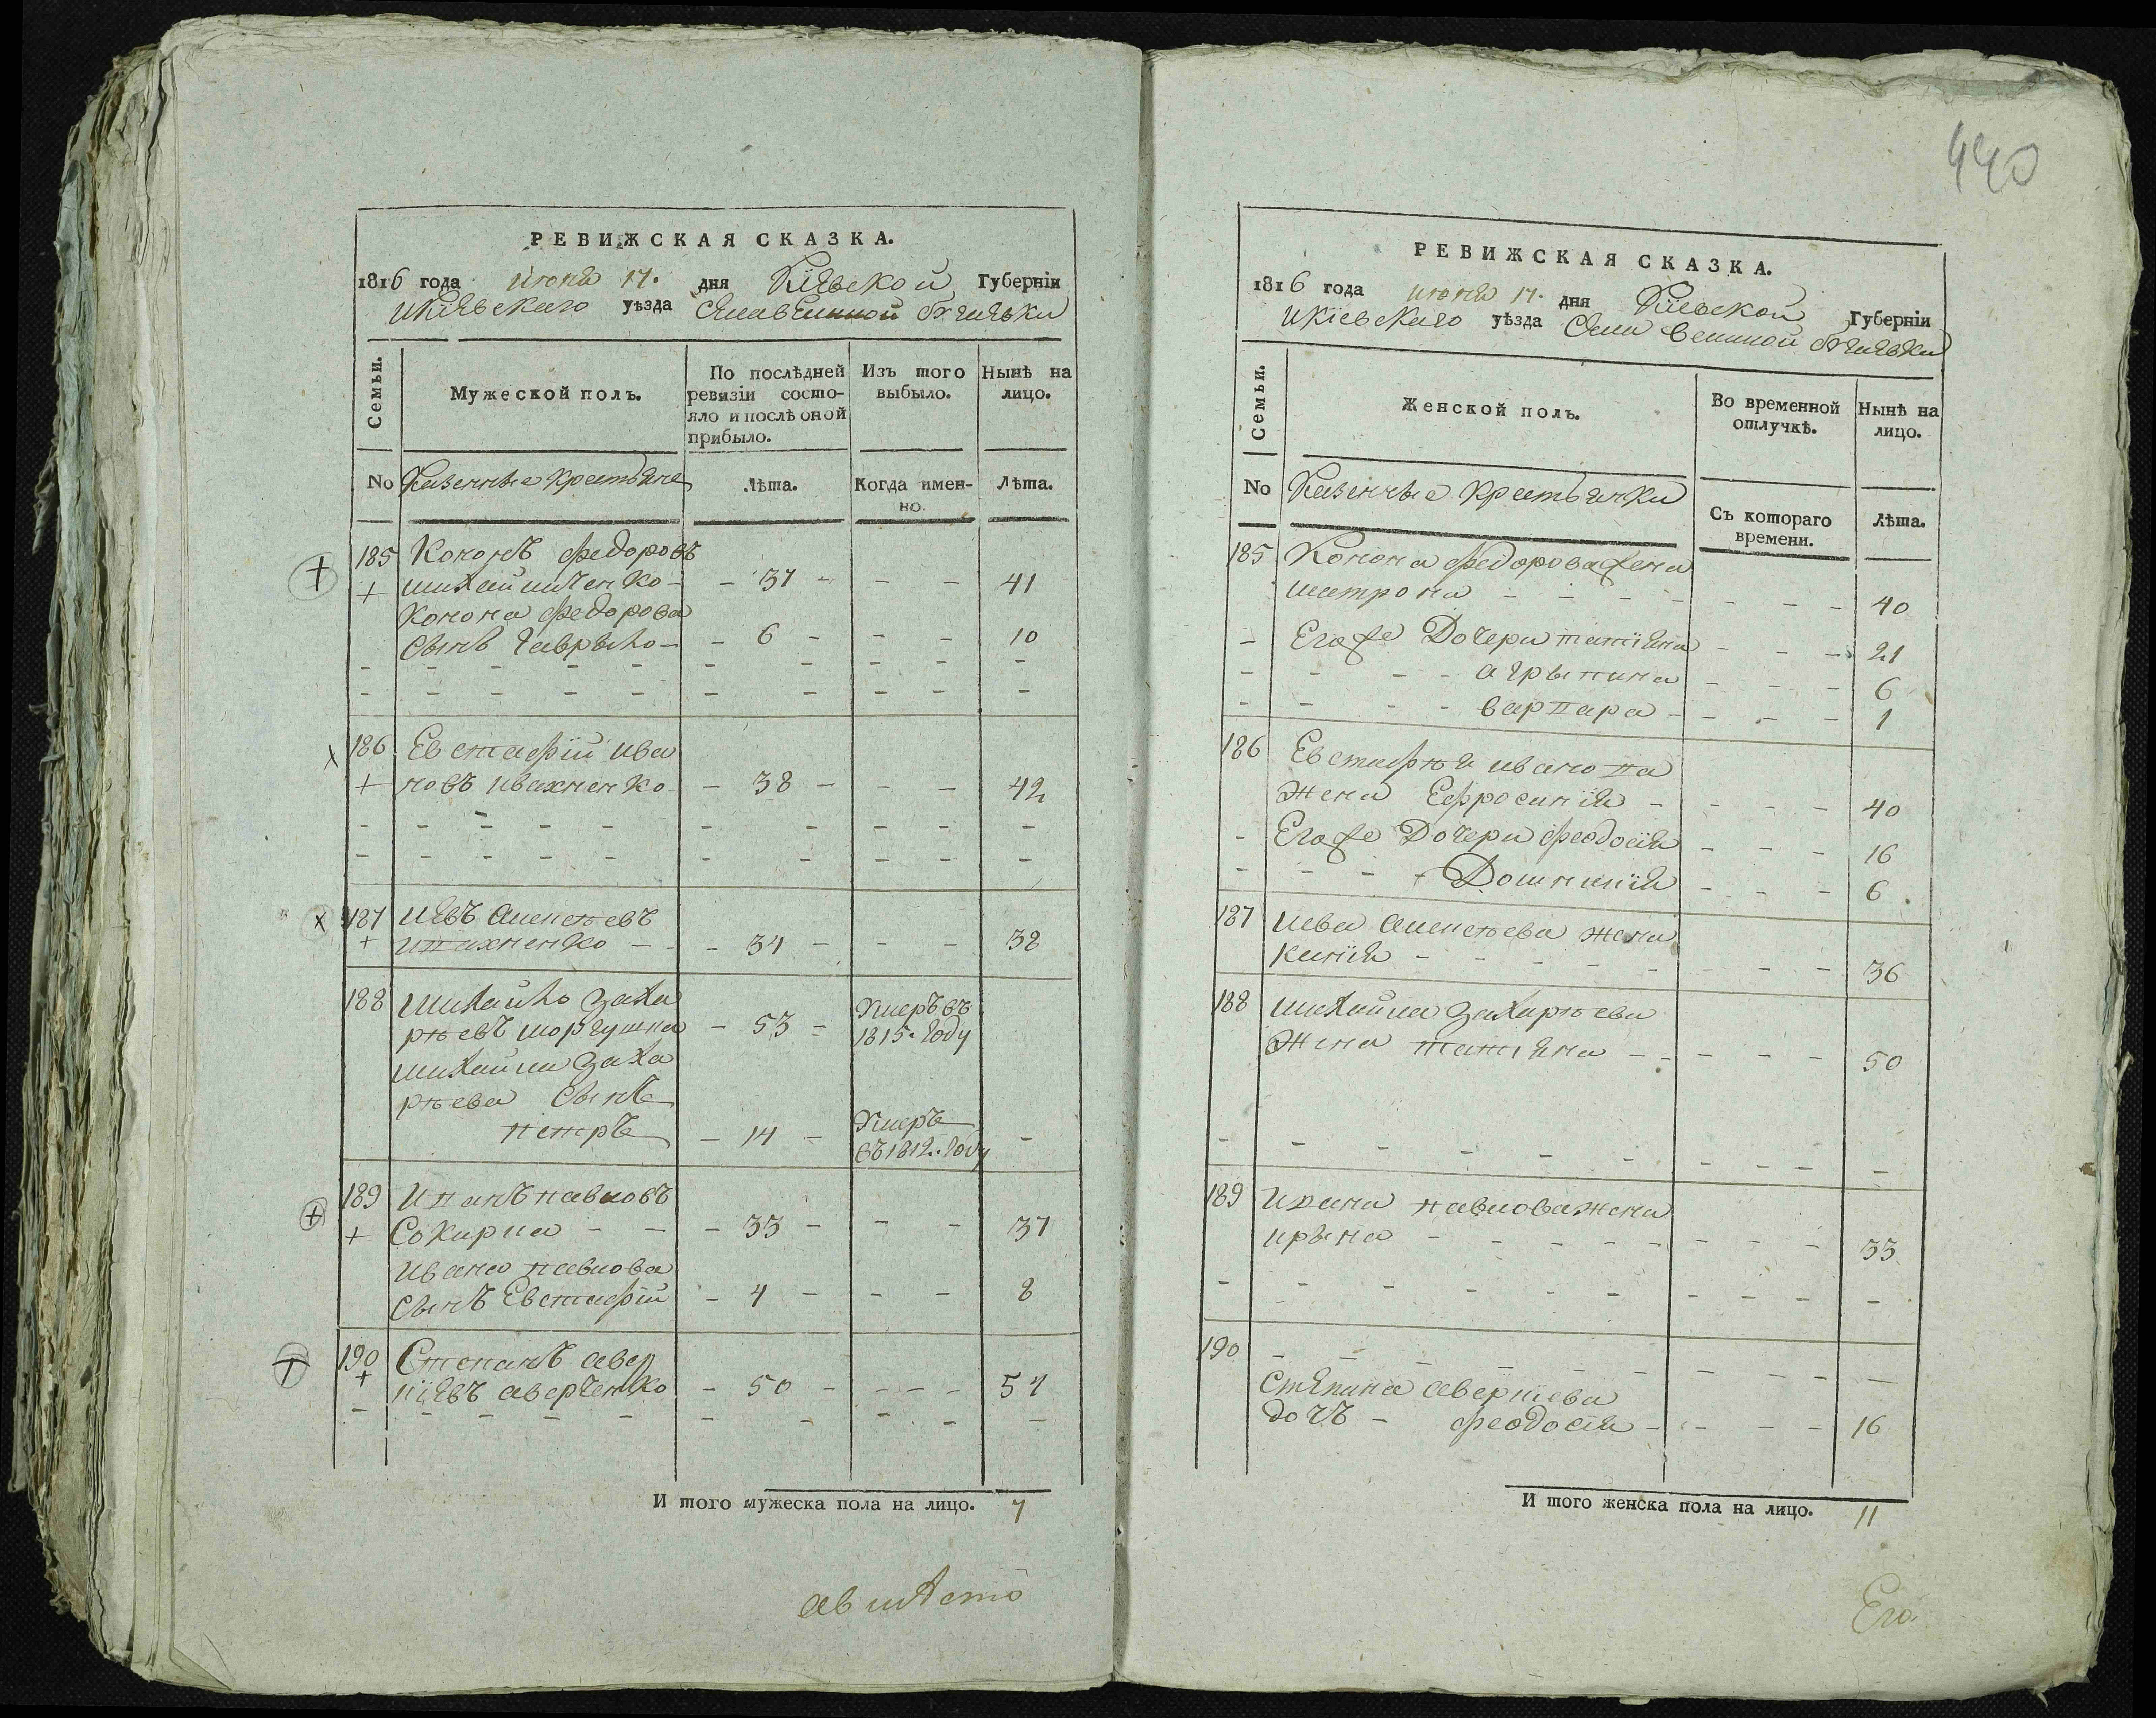 440
РЕВИЖСКАЯ СКАЗКА.
1816 года июня 17. дня Кіевской Губерніи
икіевскаго уѣзда
Семьи.
Мужеской полъ.
По послѣдней ревизіи состо-
яло и послѣ оной
прибыло.
Изъ того
выбыло.
Нынѣ на
лицо.
No Казенные крестьяне
Лѣта.
Когда имен-
но.
Лѣта.
185 Кононъ федоровъ
+ михайличенко - 37 - - - 41
Конона федорова
сынъ гаврыло - 6 - - - 10
186 Евстафій ива
+ новъ ивахненко - 38 - - - 42
187 иевъ алексѣевъ
+ ивахненко - 34 - - - 38
188 михайло заха
рѣевъ моргушка - 53 - Умеръ въ
1815. году
михайла заха
рѣева сынъ
петръ - 14 - Умеръ
въ 1812. году
189 иванъ павловъ
+ Сокирка - 33 - - - 37
ивана павлова
сынъ Евстафій - 4 - - - 8
190 Степанъ авер
+ кіевъ аверченко - 50 - - - 54
И того мужеска пола на лицо. 7
РЕВИЖСКАЯ СКАЗКА.
1816 года июня 17. дня Кіевской Губерніи
икіевскаго уѣзда
Семьи.
Женской полъ.
Во временной
отлучкѣ.
Нынѣ на
лицо.
No Казенные крестьянки
Съ котораго
времени.
Лѣта.
185 Конона федорова жена
матрона - 40
Егоже Дочери татіяна - 21
агрыпина - 6
варвара - 1
186 Евстафѣя иванова
жена Ефросинія - 40
Егоже Дочери феодосія - 16
Домникія - 6
187 иева алексѣева жена
ксинія - 36
188 михайла захарѣева
жена татіяна - 50
189 ивана павлова жена
ирына - 33
190
степана аверкіева
дочъ - феодосія - 16
И того женска пола на лицо. 11
Его